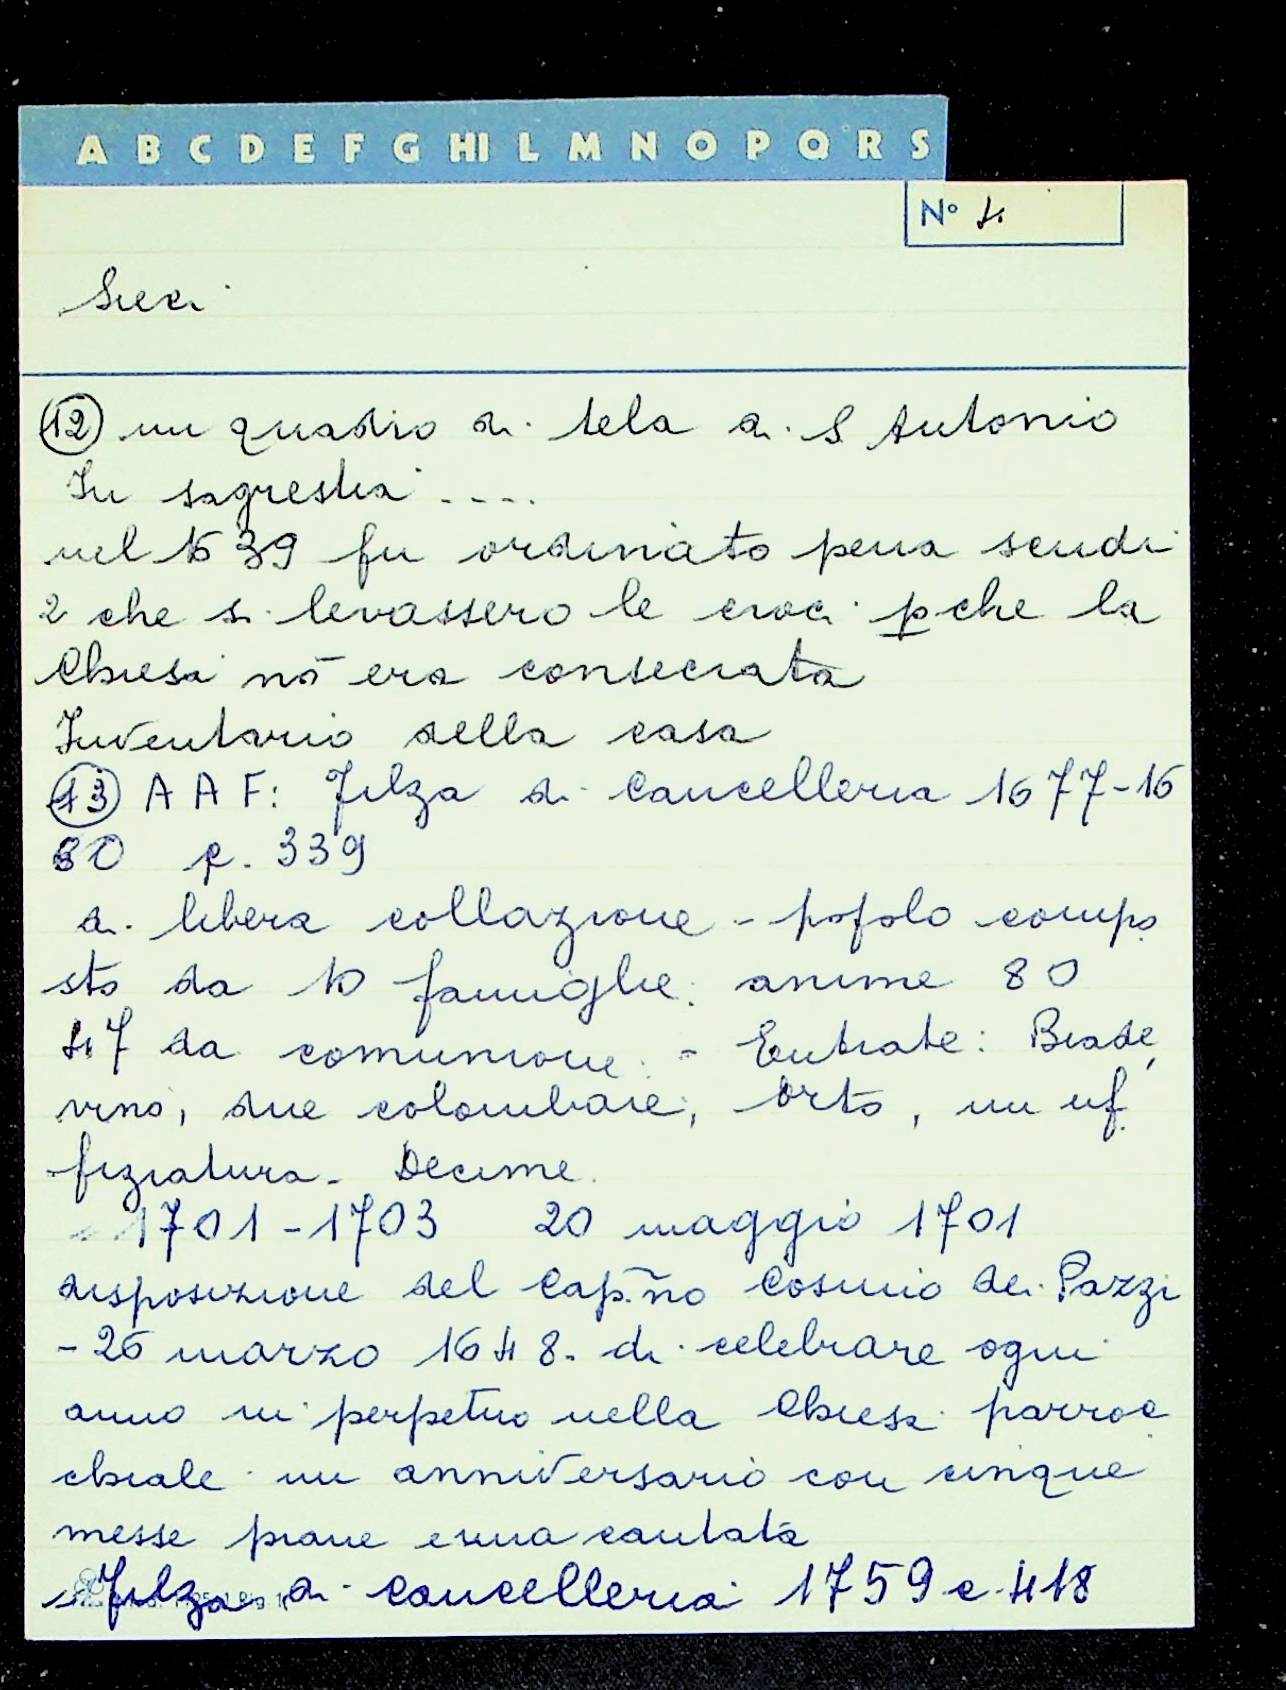 A B C D E F G HI L M N O P Q R S
N° 4
Sieci
(12) un quadro di tela di S Antonio
In sagrestia ....
nel 1639 fu ordinato pena scudi
2 che si levassero le croci pche la
Chiesa nō era consecrata
Inventario della casa
(13) A A F: Filza di Cancelleria 1677-16
80 p. 339
di libera collazione - popolo compo
sto da 10 famiglie: anime 80
47 da comunione. - Entrate: Biade,
vino, due colombaie, orto, un uf
fiziatura. Decime.
1701-1703 20 maggio 1701
disposizione del Cap.ño Cosimo dei Pazzi
- 26 marzo 1648. di celebrare ogni
anno in perpetuo nella Chiesa parroc
chiale un anniversario con cinque
messe piane e una cantata
Filza di Cancelleria 1759 c. 418